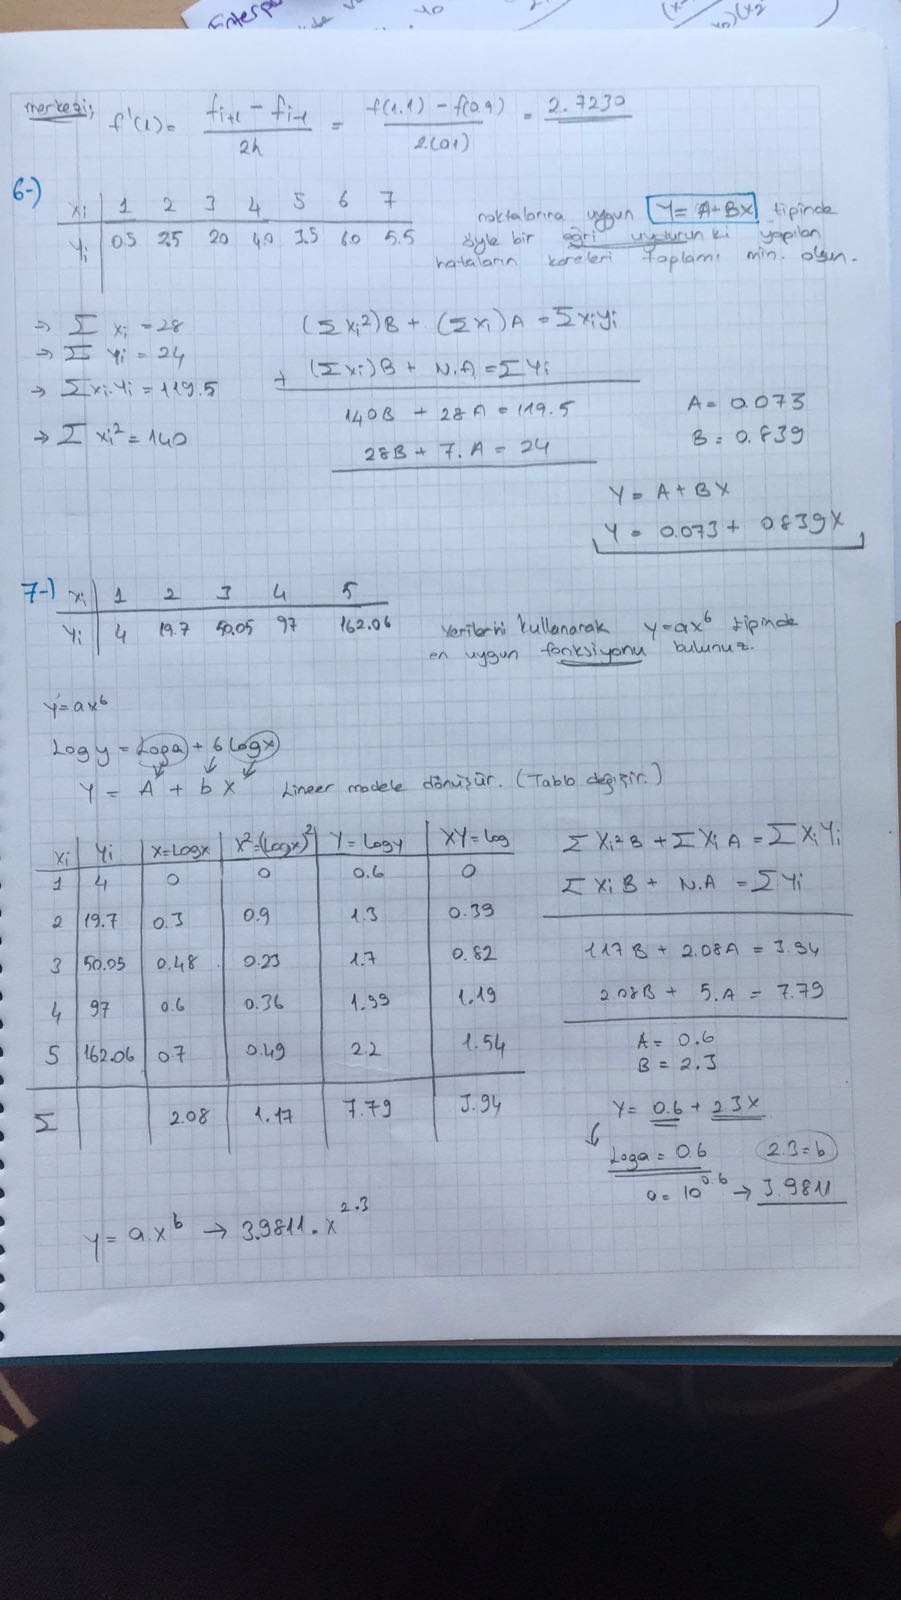 merkezi; f'(1) = (f_{i+1} - f_{i-1}) / 2h = (f(1.1) - f(0.9)) / 2.(0.1) = 2.7230
6-)
xi | 1 2 3 4 5 6 7
Yi | 0.5 2.5 20 4.0 3.5 6.0 5.5
noktalarına uygun Y = A+BX tipinde
öyle bir eğri uydurun ki yapılan
hataların kareleri toplamı min. olsun.
→ Σ xi = 28
→ Σ Yi = 24
→ Σ xi.Yi = 119.5
→ Σ xi² = 140
(Σ xi²)B + (Σ xi)A = Σ xiyi
+ (Σ xi)B + N.A = Σ Yi
140B + 28A = 119.5
28B + 7.A = 24
A = 0.073
B = 0.839
Y = A + BX
Y = 0.073 + 0.839X
7-)
xi | 1 2 3 4 5
Yi | 4 19.7 50.05 97 162.06
verilerini kullanarak y=ax^b tipinde
en uygun fonksiyonu bulunuz.
Y=ax^b
Log y = Loga + b Logx
Y = A + b X Lineer modele dönüşür. (Tablo değişir.)
xi | Yi | X=Logx | X²=(Logx)² | Y=Logy | XY=Log
1 | 4 | 0 | 0 | 0.6 | 0
2 | 19.7 | 0.3 | 0.9 | 1.3 | 0.39
3 | 50.05 | 0.48 | 0.23 | 1.7 | 0.82
4 | 97 | 0.6 | 0.36 | 1.99 | 1.19
5 | 162.06 | 0.7 | 0.49 | 2.2 | 1.54
Σ | 2.08 | 1.17 | 7.79 | 3.94
Σ Xi²B + Σ Xi A = Σ XiYi
Σ Xi B + N.A = Σ Yi
1.17B + 2.08A = 3.94
2.08B + 5.A = 7.79
A = 0.6
B = 2.3
Y = 0.6 + 2.3X
Loga = 0.6 2.3=b
a = 10^0.6 → 3.9811
Y = a.x^b → 3.9811.x^2.3